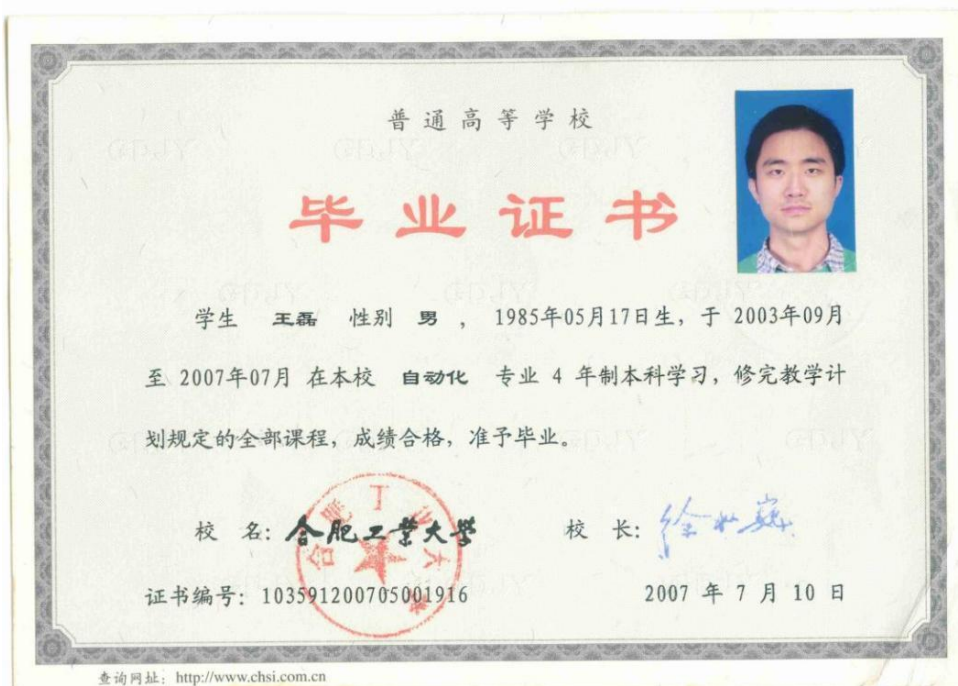 普通高等学校
毕业证书
学生 王磊 性别 男 ， 1985年05月17日生，于 2003年09月
至 2007年07月 在本校 自动化 专业 4 年制本科学习，修完教学计
划规定的全部课程，成绩合格，准予毕业。
校 名：合肥工業大學 校 长：
合肥工业大学
证书编号：103591200705001916 2007 年 7 月 10 日
查询网址：http://www.chsi.com.cn